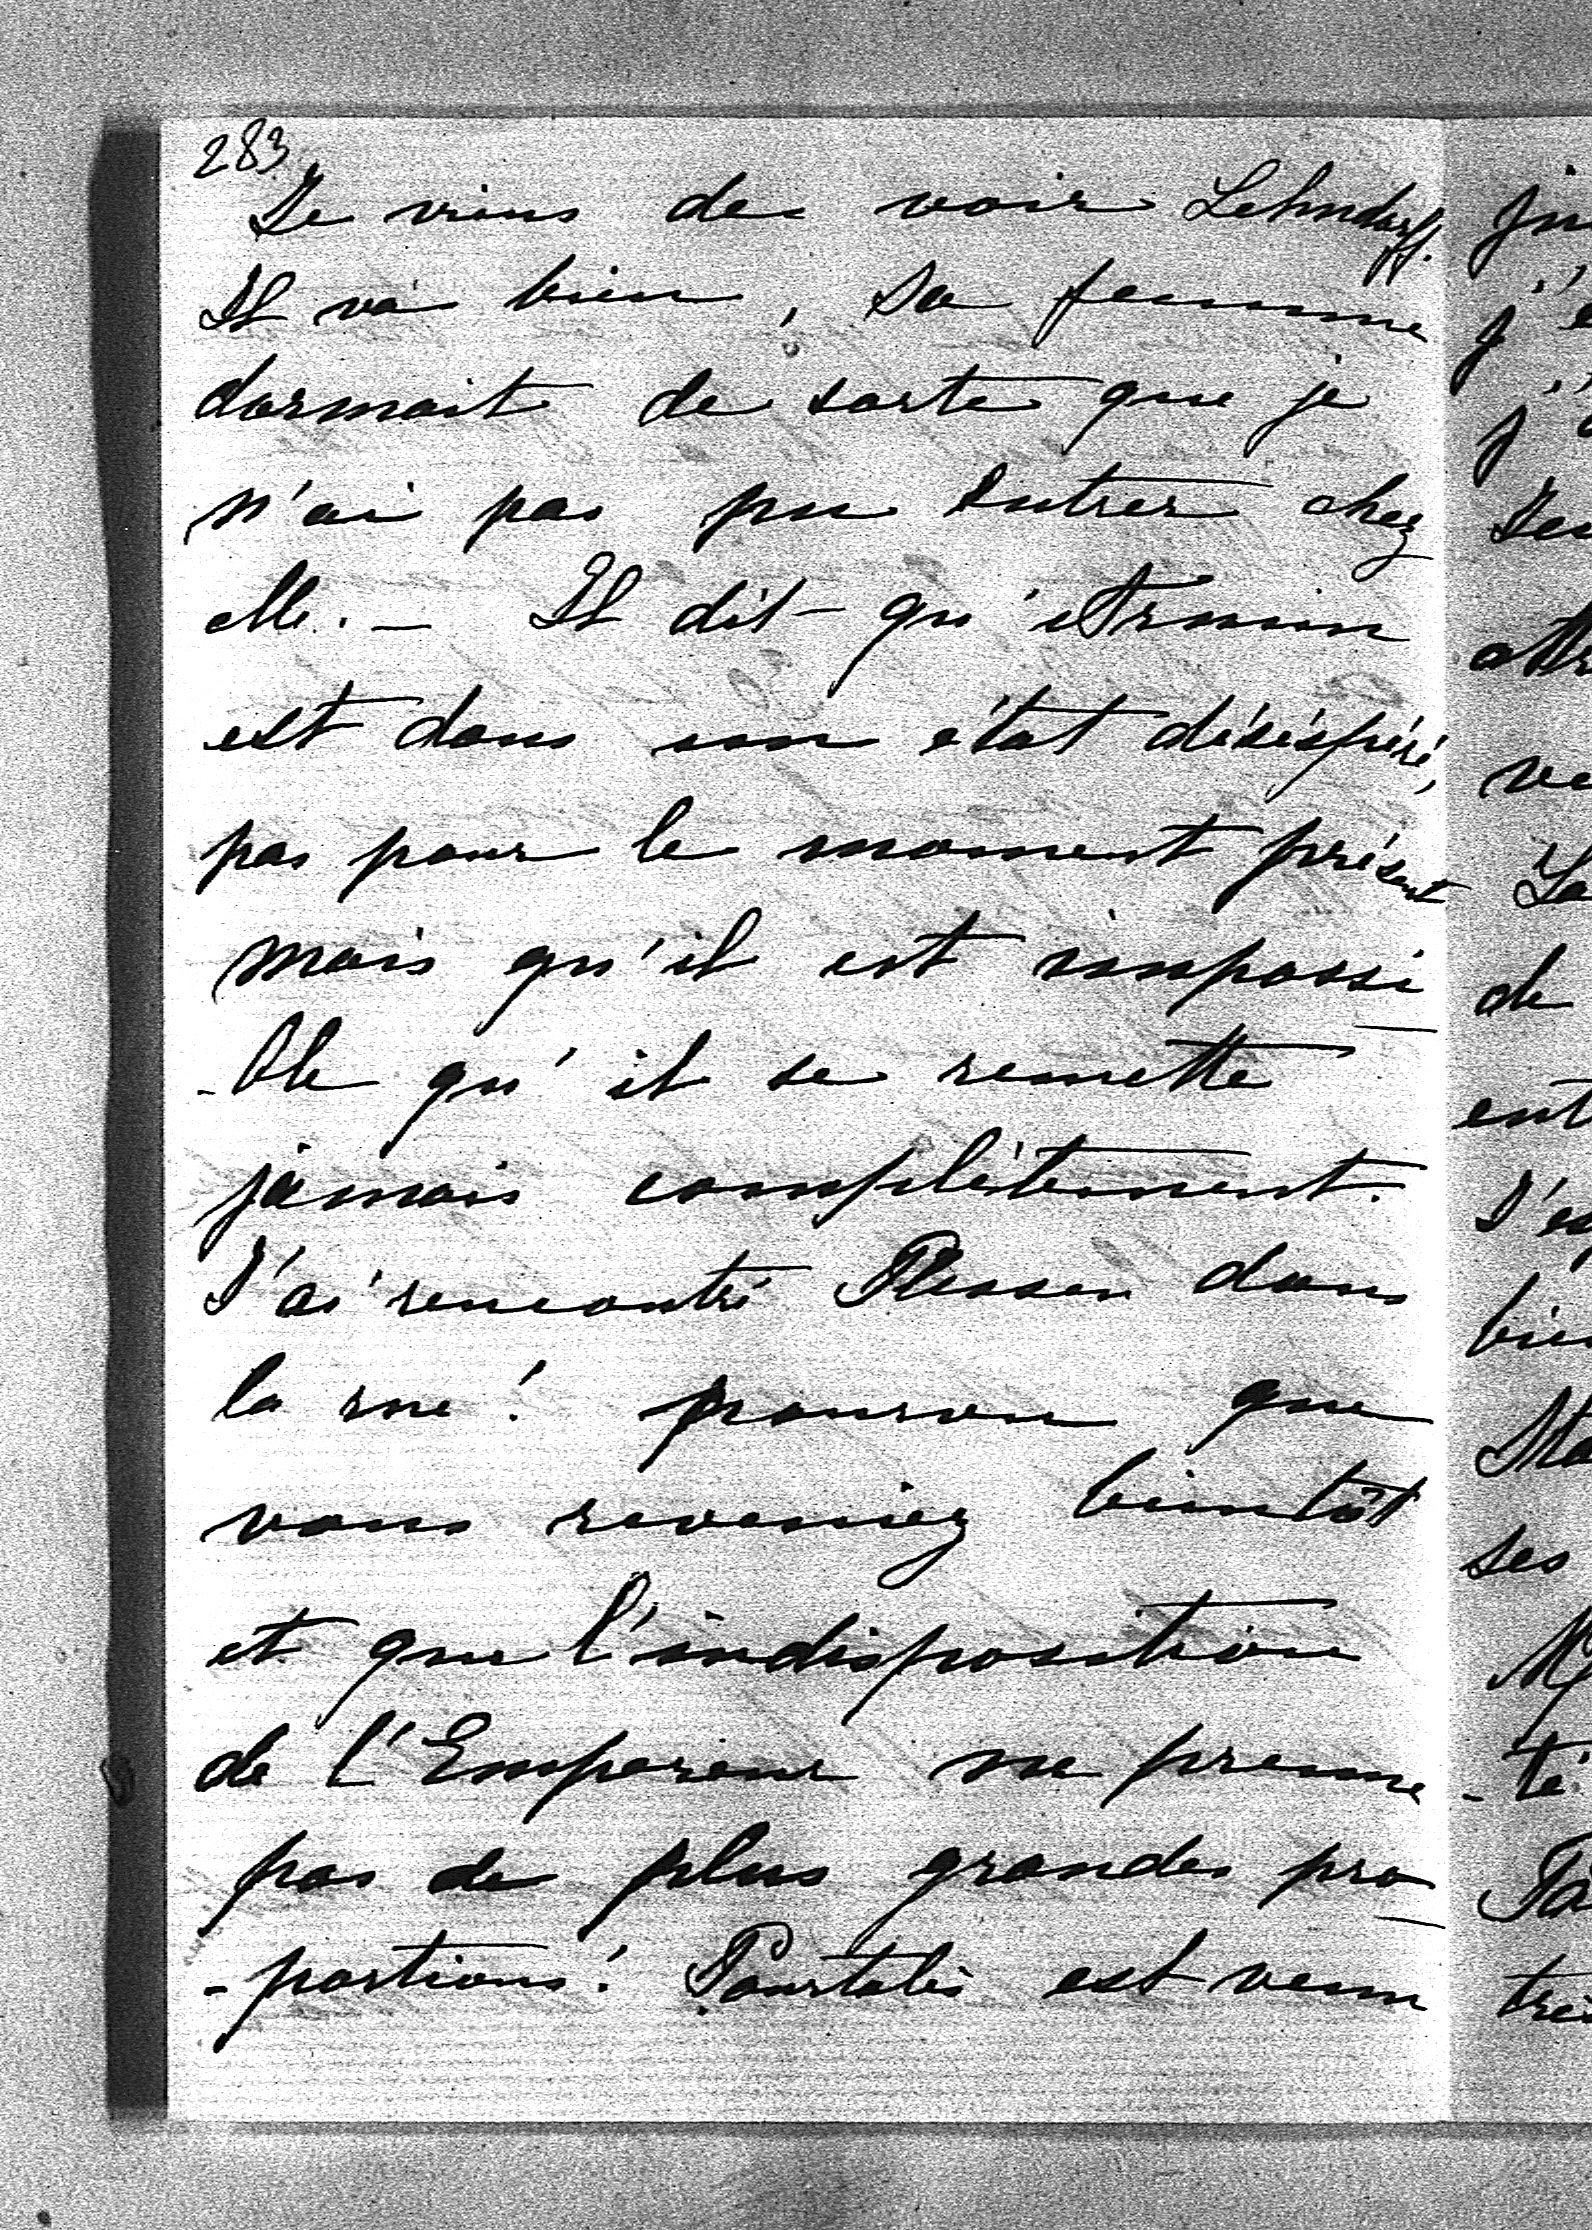 283
Je viens de voir Lehndorff.
Il va bien, sa femme
dormait de sorte que je
n'ai pas pu entrer chez
elle. — Il dit qu'Arnim
est dans un état déséspéré,
pas pour le moment présent
mais qu'il est impossi
-ble qu'il se remette
jamais complètement.
J'ai rencontré Plessen dans
la rue! pourvu que
vous reveniez bientôt
et que l'indisposition
de l'Empereur ne prenne
pas de plus grandes pro
-portions! Pourtalès est venu